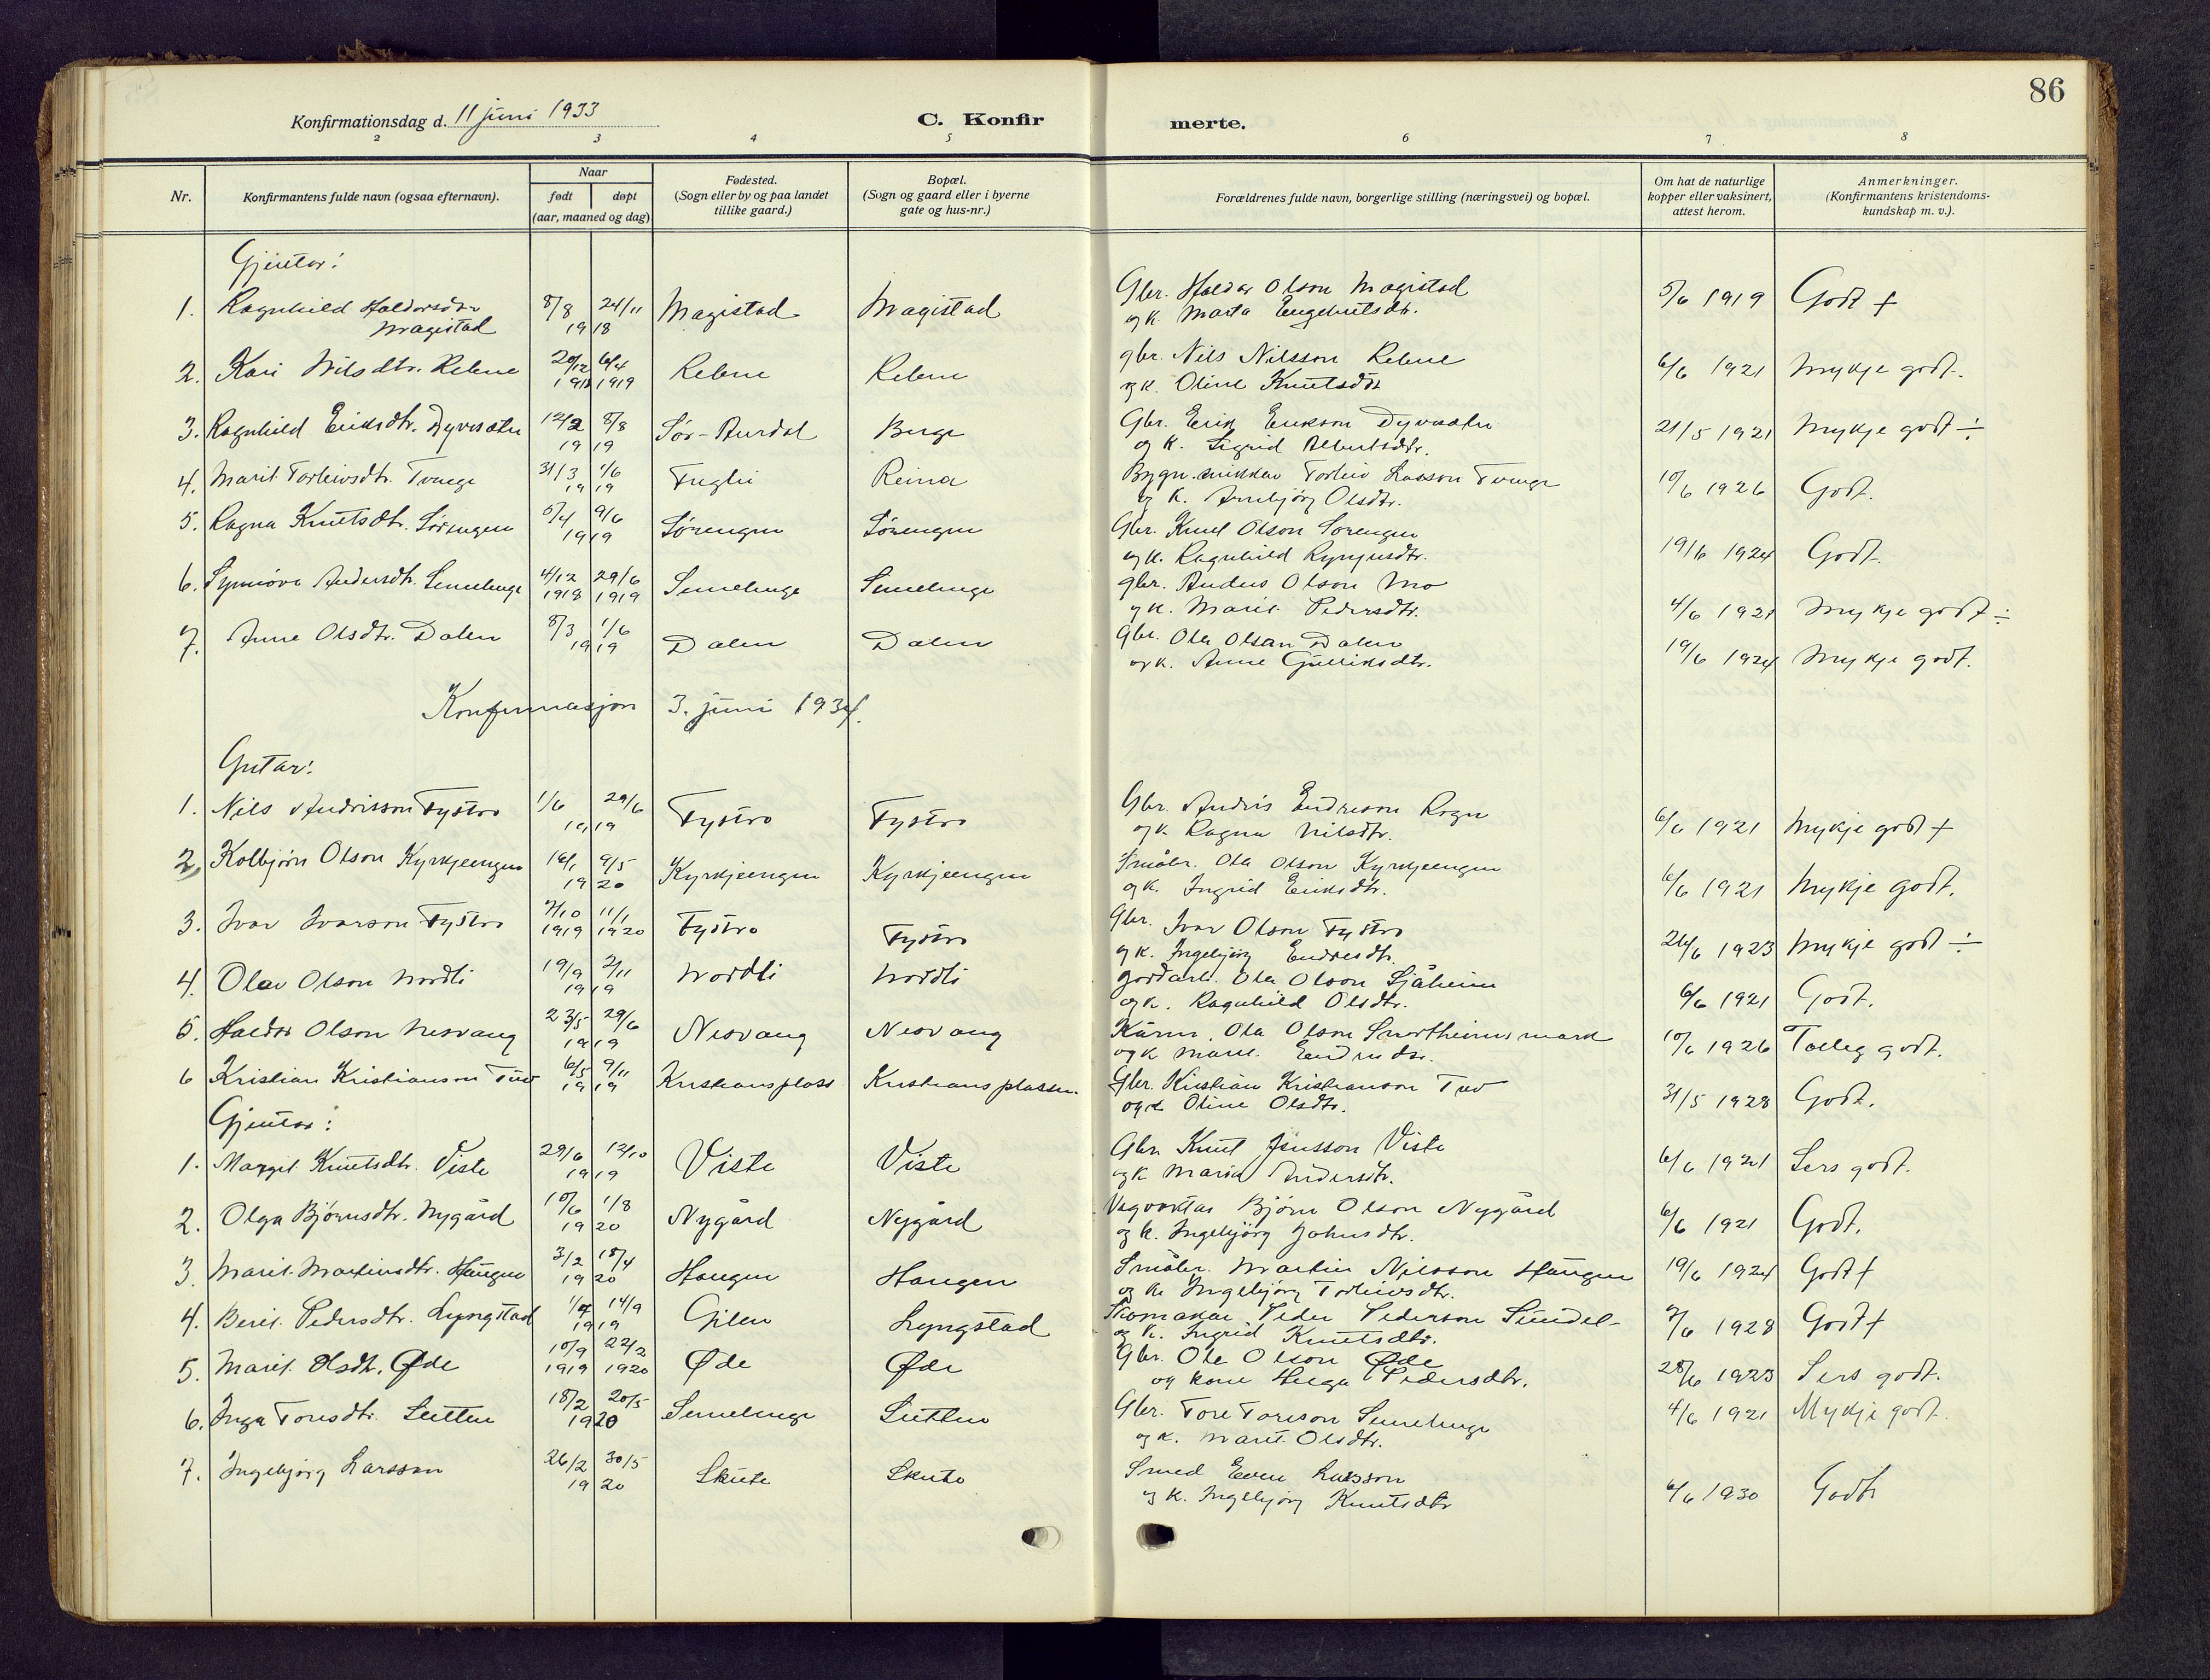 86
Konfirmationsdag d. 11 juni 1933
C. Konfir merte.
2 3 4 5 6 7 8
Nr.
Konfirmantens fulde navn (ogsaa efternavn).
Naar
født døpt
(aar, maaned og dag)
Fødested.
(Sogn eller by og paa landet
tillike gaard.)
Bopæl.
(Sogn og gaard eller i byerne
gate og hus-nr.)
Forældrenes fulde navn, borgerlige stilling (næringsvei) og bopæl.
Om hat de naturlige
kopper eller vaksinert,
attest herom.
Anmerkninger.
(Konfirmantens kristendoms-
kundskap m. v.).
Gjentor:
1. Ragnhild Haldorsdtr 8/8 24/11 Magistad Magistad Gbr. Haldor Olson Magistad 5/6 1919 Godt +
Magistad 1918 og k. Marta Engebretsdtr.
2. Kari Nilsdtr. Rebne 20/12 6/4 Rebne Rebne gbr. Nils Nilsson Rebne 6/6 1921 Mykje godt.
1918 1919 og k. Oline Knutsdtr
3. Ragnhild Eriksdtr. Dyvesæter 12/2 8/8 Sør-Aurdal Berge Gbr. Erik Erikson Dyvesæter 21/5 1921 Mykje godt ÷
1919 og k. Sigrid Albertsdtr.
4. Marit Torleivsdtr. Tvenge 31/3 1/6 Fuglei Reina Bygn.snikkar Torleiv Lasson Tvenge 10/6 1926 Godt.
1919 og k. Annbjørg Olsdtr.
5. Ragna Knutsdtr. Sørengen 5/4 9/6 Sørengen Sørengen Gbr. Knut Olson Sørengen 19/6 1924 Godt.
1919 og k. Ragnhild
6. Synnøve Andersdtr. Semelenge 4/12 29/6 Semelenge Semelenge gbr. Anders Olson Mo 4/6 1921 Mykje godt ÷
1918 1919 og k. Marit Pedersdtr.
7. Anne Olsdtr. Dalen 8/3 1/6 Dalen Dalen Gbr. Ola Olsen Dalen 19/6 1924 Mykje godt.
1919 og k. Anne Gulliksdtr.
Konfirmasjon 3. juni 1934.
Gutar:
1. Nils Andrisson Fystro 1/6 29/6 Fystro Fystro Gbr. Andris Endreson Rogn 6/6 1921 Mykje godt +
1919 og k Ragna Nilsdtr.
2. Kolbjørn Olson Kyrkjeengen 16/1 9/5 Kyrkjeengen Kyrkjeengen Småbr. Ola Olson Kyrkjeengen 6/6 1921 Mykje godt.
1920 og k. Ingrid Eriksdtr.
3. Ivar Ivarson Fystro 7/10 11/1 Fystro Fystro Gbr. Ivar Olson Fystro 26/6 1923 Mykje godt ÷
1919 1920 og k. Ingebjørg Endresdtr.
4. Olav Olson Nordli 19/9 2/11 Nordli Nordli gardarb. Ola Olson Sjåheim 6/6 1921 Godt.
1919 og k. Ragnhild Olsdtr.
5. Haldor Olson Nesvang 23/5 29/6 Nesvang Nesvang Ola Olson Snortheimsmark 10/6 1926 Toleg godt.
1919 og k Marit
6 Kristian Kristianson Tuv 6/5 9/11 Kristiansplass Kristiansplassen. Gbr. Kristian Kristianson Tuv 31/5 1928 Godt.
1919 og k Oline Olsdtr.
Gjentor:
1. Margit Knutsdtr. Viste 29/6 12/10 Viste Viste Gbr Knut Jensson Viste 6/6 1921 Sers godt.
1919 og k Maria Andersdtr.
2. Olga Bjørnsdtr. Nygård 10/6 1/8 Nygård Nygård Vegvaktar Bjørn Olson Nygård 6/6 1921 Godt.
1920 og k. Ingebjørg Johnsdtr.
3. Marit Martinsdtr. Haugen 3/2 18/4 Haugen Haugen Småbr. Martin Nilsson Haugen 19/6 1924 Godt +
1920 og k. Ingebjørg Torleivsdtr.
4. Berit Pedersdtr. Lyngstad 14/9 Gilen Lyngstad Skomakar Peder Pederson Sundel- 7/6 1928 Godt +
1919 og k. Ingrid Knutsdtr.
5. Marit Olsdtr. Øde 10/9 22/2 Øde Øde Gbr. Ole Olson Øde 28/6 1923 Sers godt.
1919 1920 og kone Helga Pedersdtr.
6. Inga Toresdtr. Sletten 18/2 20/5 Semelenge Sletten Gbr. Tore Toreson Semelenge 4/6 1921 Mykje godt.
1920 og k. Marit Olsdtr.
7. Ingebjørg Larsson 26/2 30/5 Skute Skute Smed Even Larsson 6/6 1930 Godt
1920 og k. Ingebjørg Knutsdtr